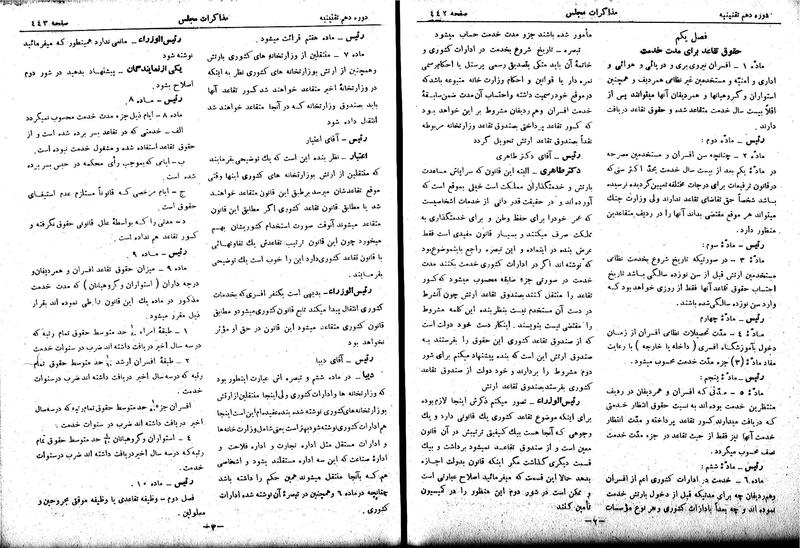 دوره دهم تقنینیه
مذاکرات مجلس
صفحه ۴۴۲
فصل یکم
حقوق تقاعد برای مدت خدمت
مادّه ۱ - افسران نیروی بری و دریائی و هوائی و
اداری و امنیّه و مستخدمین غیر نظامی همردیف و همچنین
استواران و گروهبانها و همردیفان آنها میتوانند پس از
اقلاً بیست سال خدمت متقاعد شده و حقوق تقاعد دریافت
دارند.
رئیس - مادّه دوم :
مادّه ۲ - چنانچه سن افسران و مستخدمین مصرحه
در مادّهٔ یکم بعد از بیست سال خدمت بحدّ اکثر سنی که
در قانون ترفیعات برای درجات مختلفه تعیین گردیده نرسیده
باشد شخصاً حق تقاضای تقاعد ندارند ولی وزارت جنگ
میتواند هر موقع مقتضی بداند آنها را در ردیف متقاعدین
منظور دارد.
رئیس - مادّهٔ سوم :
مادّه ۳ - در صورتیکه تاریخ شروع بخدمت نظامی
مستخدمین ارتش قبل از سن نوزده سالگی باشد تاریخ
احتساب حقوق تقاعد آنها فقط از روزی خواهد بود که
وارد سن نوزده سالگی شده باشند.
رئیس - مادّهٔ چهارم
مادّه ۴ - مدّت تحصیلات نظامی افسران از زمان
دخول بآموزشگاه افسری (داخله یا خارجه) با رعایت
مفاد مادّهٔ (۳) جزء مدّت خدمت محسوب میشود.
رئیس - مادّهٔ پنجم :
مادّه ۵ - مدّتی که افسران و همردیفان در ردیف
منتظرین خدمت بوده اند به نسبت حقوق انتظار خدمتی
که دریافت میدارند کسور تقاعد پرداخته و مدّت انتظار
خدمت آنها نیز فقط از حیث تقاعد در جزء مدّت خدمت
نصف محسوب میگردد.
رئیس - مادّهٔ ششم :
مادّه ۶ - خدمت در ادارات کشوری اعم از افسران
و همردیفان چه برای مدتیکه قبل از دخول بارتش خدمت
نموده اند و چه بعداً بادارات کشوری و هر نوع مؤسسات
مأمور شده باشند جزو مدت خدمت حساب میشود
تبصره - تاریخ شروع بخدمت در ادارات کشوری و
خاتمهٔ آن باید متکی بتصدیق رسمی پرسنل با احکام رسمی
نمره دار یا قوانین و احکام وزارت خانه متبوعه باشد که
در موقع خود رسمیت داشته و احتساب آن مدت ضمن سابقهٔ
خدمت افسران و همردیفان مشروط بر این خواهد بود
که کسور تقاعد پرداختی بصندوق تقاعد وزارتخانه مربوطه
نقداً بصندوق تقاعد ارتش تحویل گردد
رئیس - آقای دکتر طاهری
دکتر طاهری - البته این قانون که سراپاش مساعدت
بارتش و خدمتگذاران مملکت است خیلی بموقع است که
آورده اند و در حقیقت قدر دانی از خدمات اشخاصیست
که عمر خود را برای حفظ وطن و برای خدمتگذاری به
مملکت صرف میکنند و بسیار قانون مفیدی است فقط
عرض بنده در اینماده و این تبصره راجع باینموضوع بود
که نوشته اند اگر در ادارات کشوری خدمت بکنند مدت
خدمت در صورتی جزء سابقه محسوب میشود که کسور
تقاعد را منتقل کنند بصندوق تقاعد ارتش چون آنشرط
در دست آن مستخدم نیست بنظر بنده این کلمه مشروط
را مقتضی نیست بنویسند. اینکار دست خود دولت است
که از صندوق تقاعد کشوری این حقوق را بفرستند به
صندوق ارتش این است که بنده پیشنهاد میکنم برای شور
دوم مشروط را بردارند و خود دولت از صندوق تقاعد
کشوری بفرستد بصندوق تقاعد ارتش
رئیس الوزراء - تصور میکنم ذکرش اینجا لازم بوده
برای اینکه موضوع تقاعد کشوری یک قانونی دارد و یک
وجوهی که آنجا هست بیک کیفیتی ترتیبش در آن قانون
معین است و از صندوق تقاعد نمیشود برداشت و بیک
قسمت دیگری گذاشت مگر اینکه قانون بدولت اجازه
بدهد حالا این قسمت که میفرمائید اصلاح عبارتی است
و ممکن است در شور دوم این منظور را در کمیسیون
تأمین کنند
-۲-
دوره دهم تقنینیه
مذاکرات مجلس
صفحه ۴۴۳
رئیس - مادّه هفتم قرائت میشود.
مادّه ۷ - منتقلین از وزارتخانه های کشوری بارتش
و همچنین از ارتش بوزارتخانه های کشوری نظر به اینکه
در وزارتخانهٔ اخیر متقاعد خواهند شد کسور تقاعد آنها
باید بصندوق وزارتخانه که در آنجا متقاعد خواهند شد
انتقال داده شود
رئیس - آقای اعتبار
اعتبار - نظر بنده این است که یک توضیحی بفرمایند
که منتقلین از ارتش بوزارتخانه های کشوری اینها وقتی
موقع تقاعدشان میرسد بر طبق این قانون متقاعد خواهند
شد یا مطابق قانون تقاعد کشوری اگر مطابق این قانون
متقاعد میشوند آنوقت صورت استخدام کشوریشان بهم
میخورد چون این قانون ترتیب تقاعدش یک تفاوتهائی
با قانون تقاعد کشوری دارد این را خوب است یک توضیحی
بفرمایند.
رئیس الوزراء - بدیهی است یکنفر افسری که بخدمات
کشوری انتقال پیدا میکند تابع قانون کشوری میشود و مطابق
قانون کشوری متقاعد میشود این قانون در حق او مؤثر
نخواهد بود
رئیس - آقای دیبا
دیبا - در مادّه ششم و تبصره اش عبارت اینطور بود
که وزارتخانه ها و ادارات کشوری ولی اینجا منتقلین از ارتش
بوزارتخانه های کشوری نوشته شده بنده عقیده ام این است اینجا
هم ادارات کشوری نوشته شود بهتر است یعنی شامل وزارتخانه ها
و ادارات مستقل مثل اداره تجارت و اداره فلاحت و
ادارهٔ صناعت که این سه اداره مستقلند بشود و اشخاصی
هم که بآنجا منتقل میشوند همین حکم را داشته باشد
چنانچه در ماده ۶ و همچنین در تبصرهٔ آن نوشته شده ادارات
کشوری.
رئیس الوزراء - مانعی ندارد همینطور که میفرمائید
یکی از نمایندگان - پیشنهاد بدهید در شور دوم
اصلاح بشود.
رئیس - ماده ۸.
ماده ۸ - ایام ذیل جزء مدت خدمت محسوب نمیگردد
الف - خدمتی که در تقاعد بسر برده شده است و از
حقوق تقاعد استفاده شده و مشغول خدمت نبوده است.
ب - ایامی که بموجب رأی محکمه در حبس بسر برده
شده.
ج - ایام مرخصی که قانوناً مستلزم عدم استیفای
حقوق است.
د - مدتی را که بواسطهٔ علل قانونی حقوق نگرفته و
کسور تقاعد هم نداده است.
رئیس - ماده ۹.
ماده ۹ - میزان حقوق تقاعد افسران و همردیفان و
درجه داران (استواران و گروهبانان) که مدت خدمت
مذکور در ماده یک این قانون را طی نموده اند بقرار
ذیل مقرر میشود.
۱ - طبقهٔ امراء حد متوسط حقوق تمام رتبه که
در سه سال اخیر دریافت داشته اند ضرب در سنوات خدمت
۲ - طبقه افسران ارشد حد متوسط حقوق تمام
رتبه که در سه سال اخیر دریافت داشته اند ضرب در سنوات
خدمت
افسران جزء حد متوسط حقوق تمام رتبه که در سه سال
اخیر دریافت داشته اند ضرب در سنوات خدمت.
۴ - استواران و گروهبانان حد متوسط حقوق تمام
رتبه که در سه سال اخیر دریافت داشته اند ضرب در سنوات
خدمت.
رئیس - ماده ۱۰.
فصل دوم - وظیفه تقاعدی یا وظیفه موفق مجروحین و
معلولین.
-۳-